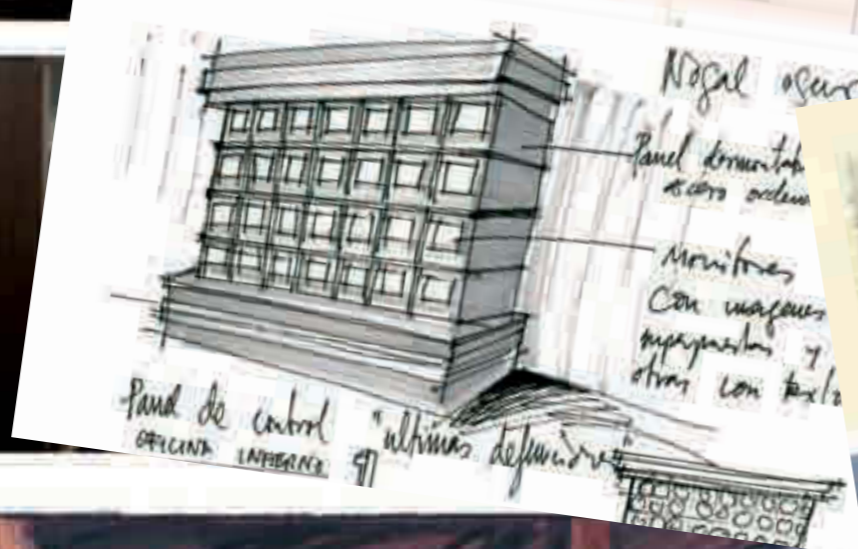 Nogal oscur
Panel desmontab
acero
Monitores
Con imagenes
superpuestas y
otras con texto
Panel de control "ultimas defunciones"
OFICINA INFIERNO